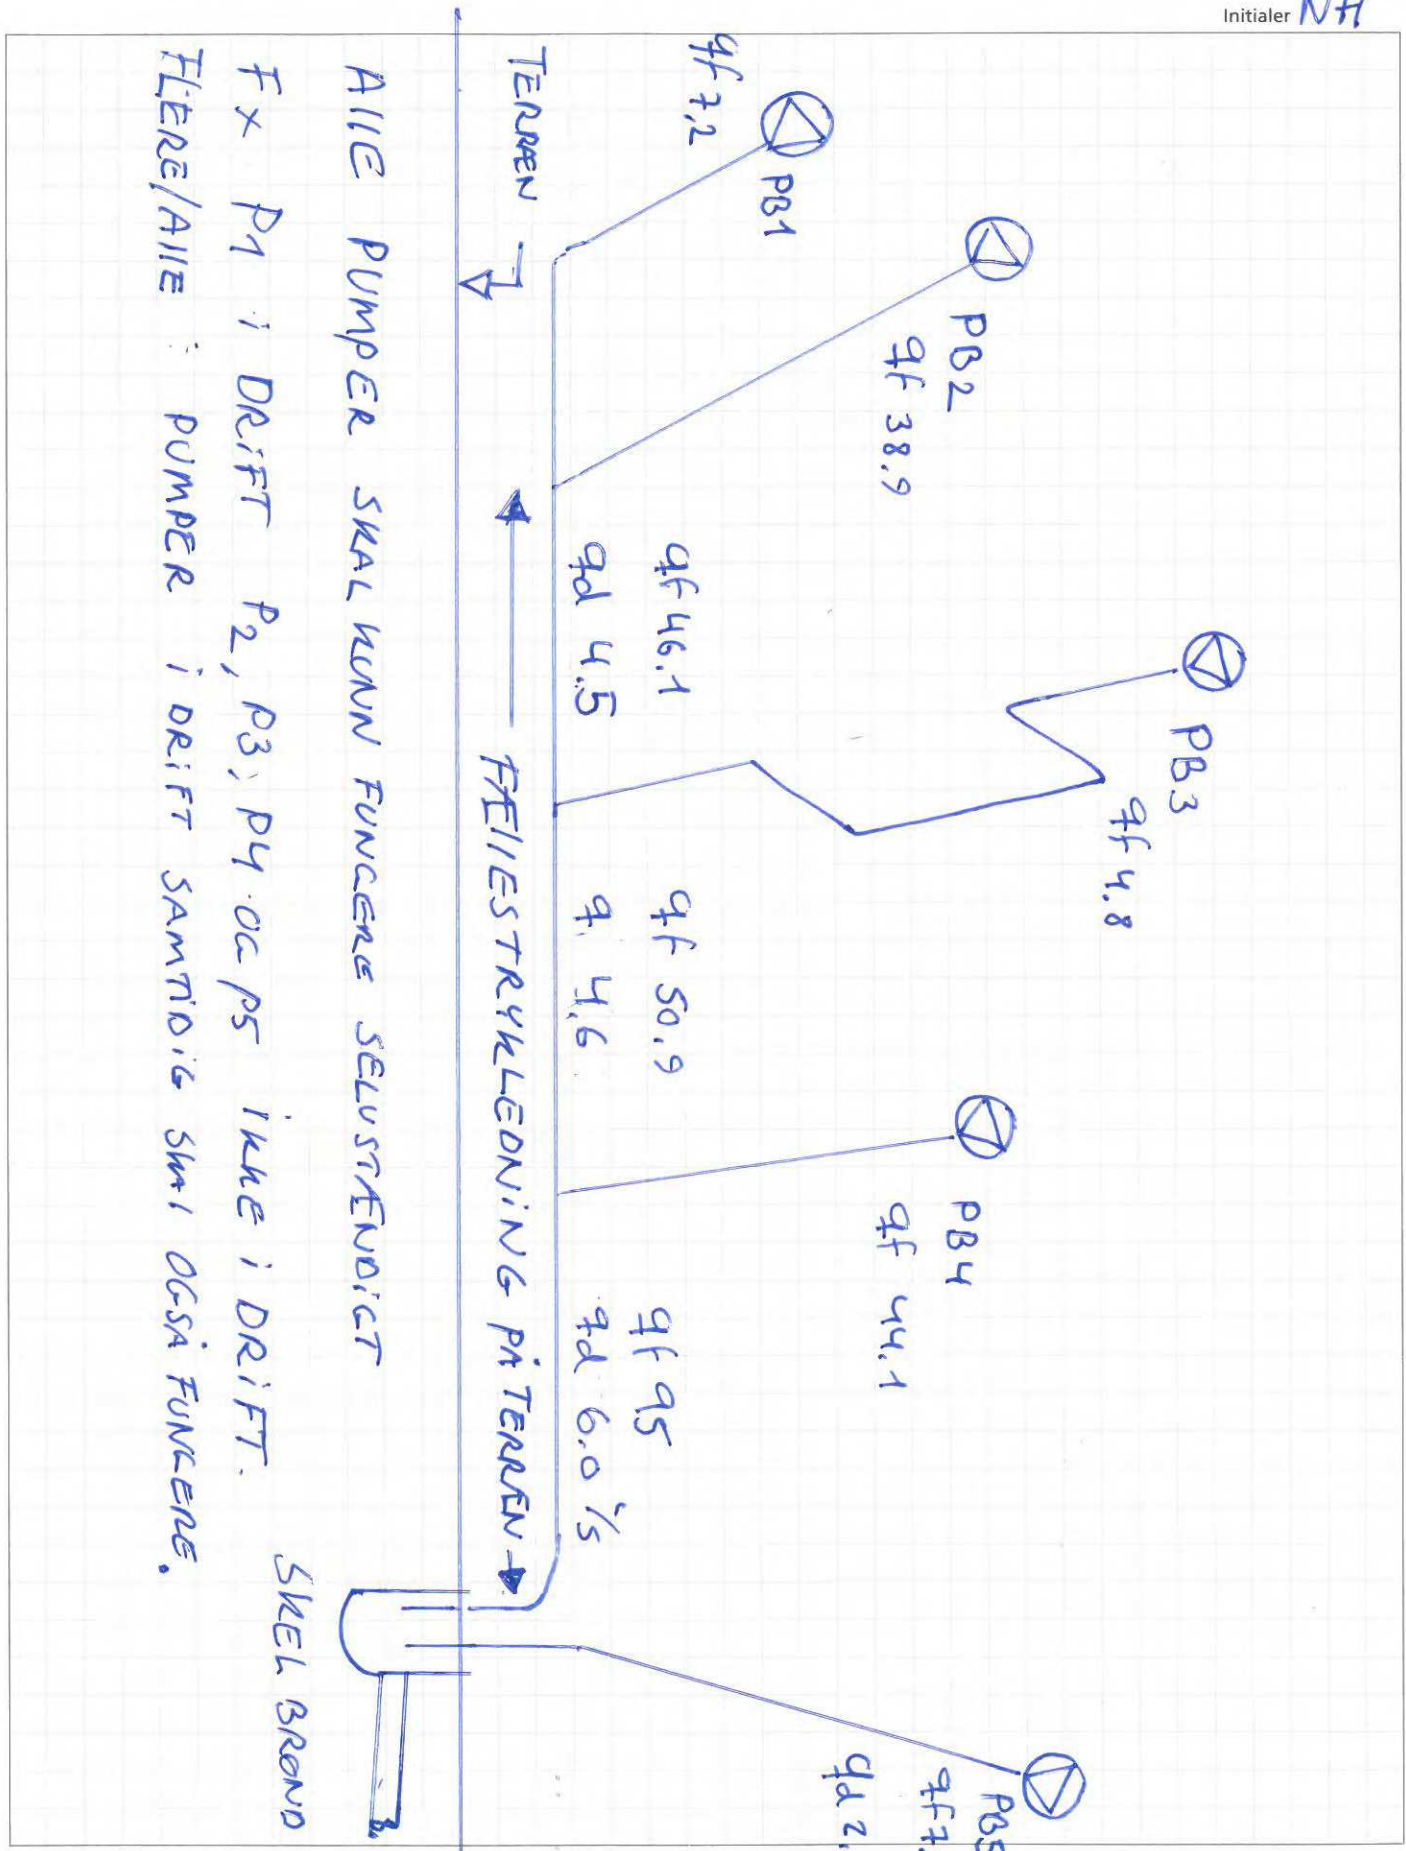 Initialer NH
PB1
qf 7,2
PB2
qf 38.9
PB3
qf 4.8
PB4
qf 44.1
PB5
qf 7.
qd 2.
qf 46.1
qd 4.5
qf 50.9
q 4.6
qf 95
qd 6.0 l/s
TERRÆN
FÆLLESTRYKLEDNING PÅ TERRÆN
AllE PUMPER SKAL KUNN FUNGERE SELVSTÆNDIGT
Fx P1 i DRIFT P2, P3, P4 OG P5 iKKE i DRIFT.
FLERE/AllE PUMPER i DRIFT SAMTIDIG SKAl OGSÅ FUNGERE.
SKEL BRØND